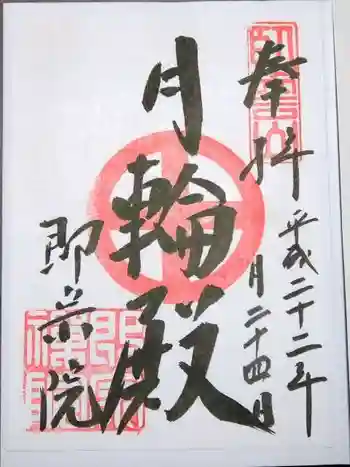 奉拝
平成二十二年
月二十四日
月輪殿
即宗院